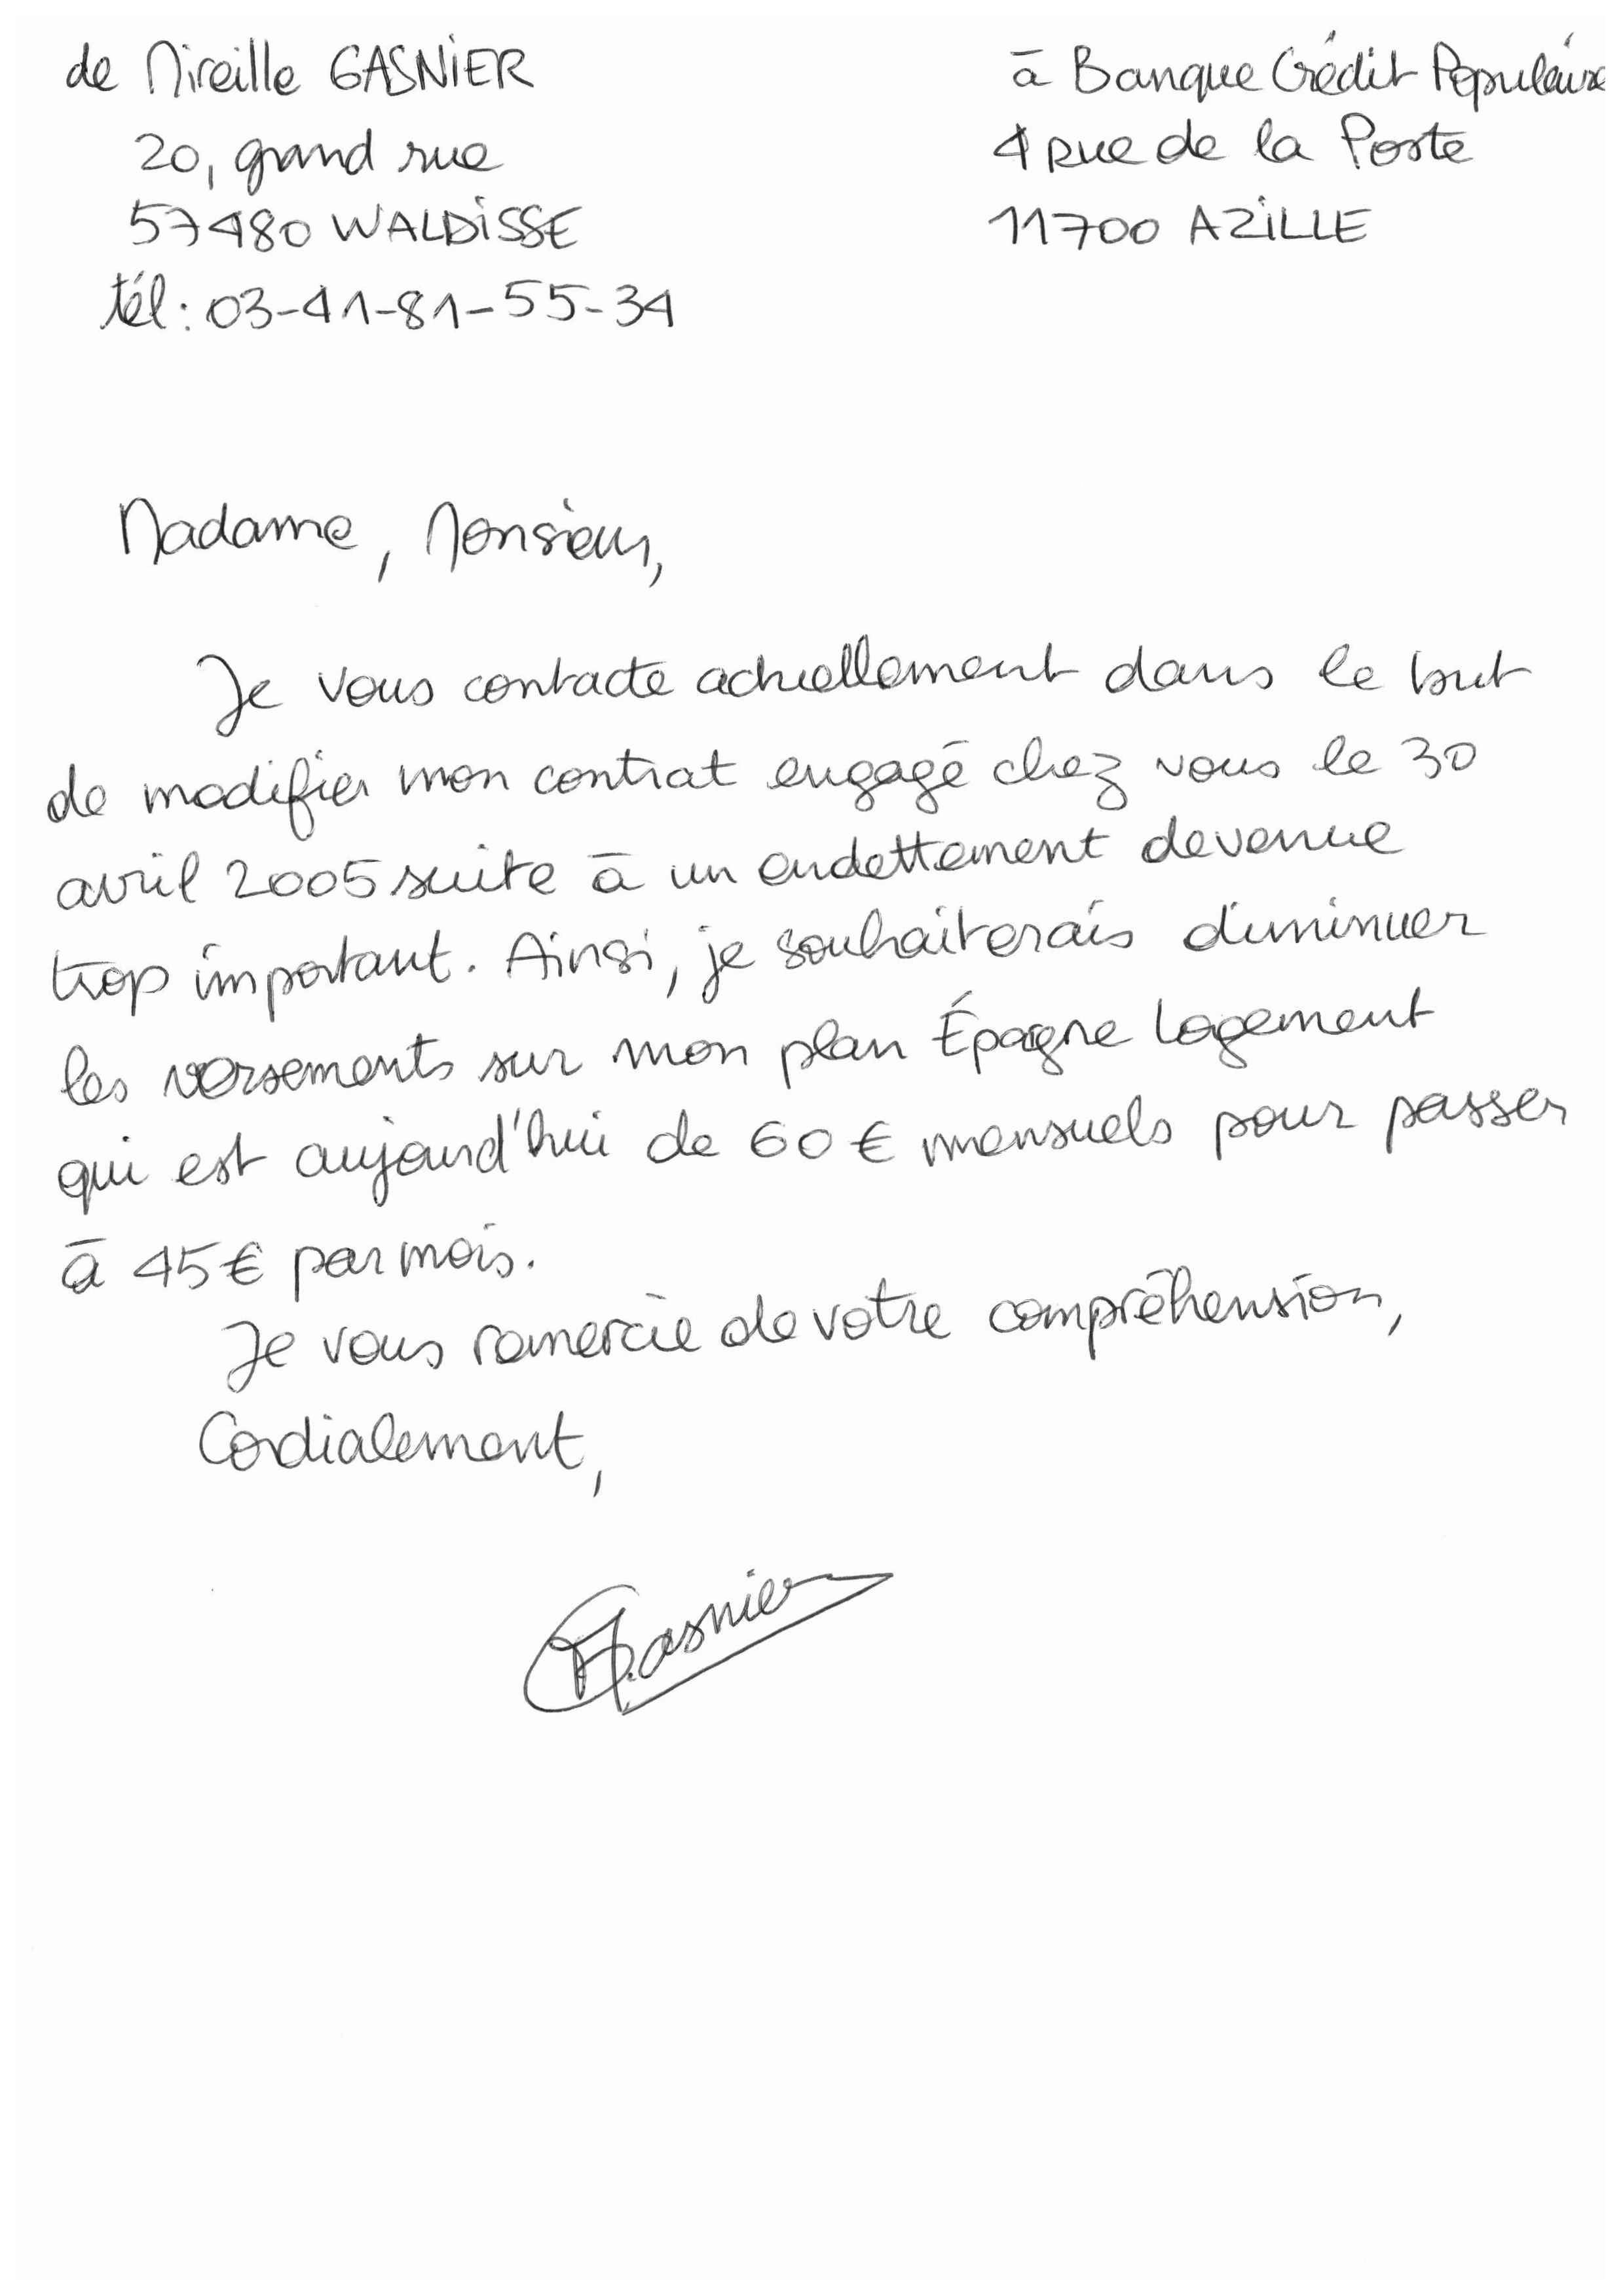 de Mireille GASNIER
20, grand rue
57480 WALDISSE
tél : 03-41-81-55-34
à Banque Crédit Populaire
4 rue de la Poste
11700 AZILLE
Madame, Monsieur,
Je vous contacte actuellement dans le but
de modifier mon contrat engagé chez vous le 30
avril 2005 suite à un endettement devenue
trop important. Ainsi, je souhaiterais diminuer
les versements sur mon plan Épagne Logement
qui est aujourd'hui de 60 € mensuels pour passer
à 45 € par mois.
Je vous remercie de votre compréhension,
Cordialement,
M.Gasnier